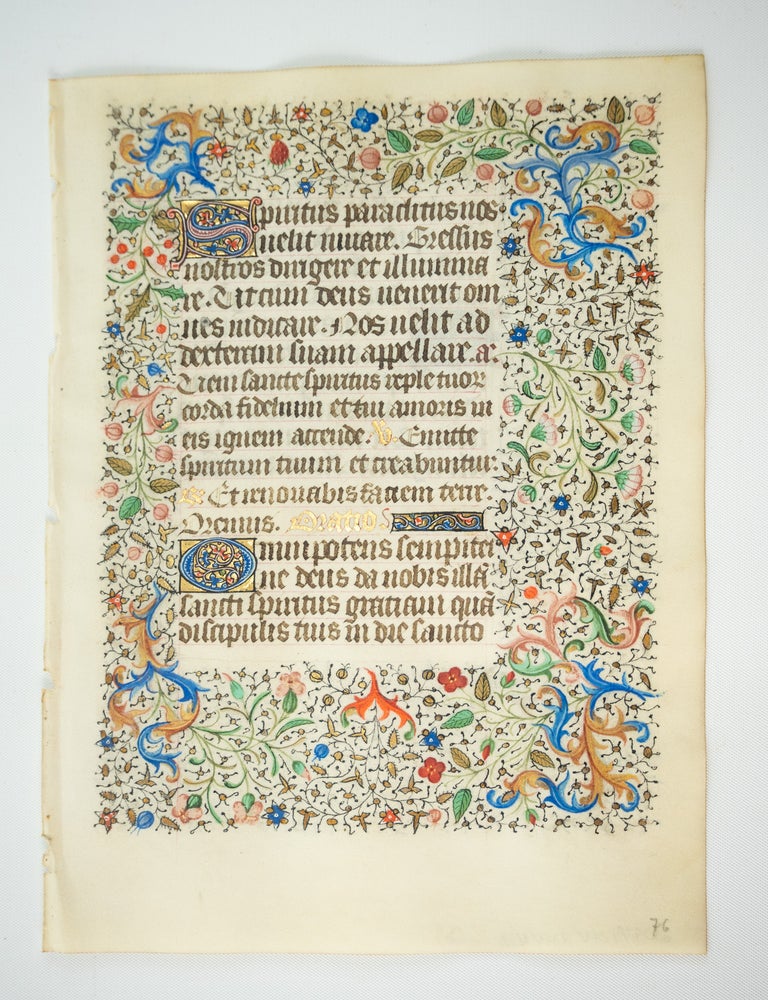 Spiritus paraclitus nos
uelit iuuare. Gressus
nostros dirigere et illumina
re. Ut cum deus uenerit om
nes iudicare. Nos uelit ad
dexteram suam appellare. a͞.
Ueni sancte spiritus reple tuoꝝ
corda fidelium et tui amoris in
eis ignem accende. ℣. Emitte
spiritum tuum et creabuntur.
℟. Et renouabis faciem terre.
Oremus. Oratio.
Omnipotens sempiter
ne deus da nobis illā
sancti spiritus gratiam quā
discipulis tuis in die sancto
76